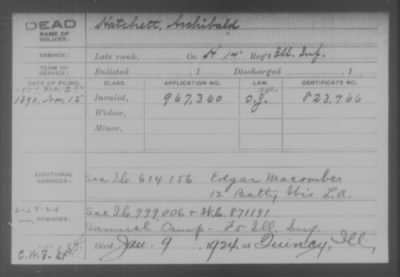 DEAD
Hatchett, Archibald
NAME OF
SOLDIER:
SERVICE: Late rank, Co. H 14" Reg't Ill. Inf.
TERM OF
SERVICE: Enlisted , 1 Discharged , 1
DATE OF FILING. CLASS. APPLICATION NO. LAW. CERTIFICATE NO.
1890. Nov. 12" Invalid, 967,360 O.J. 823,766
Widow,
Minor,
ADDITIONAL
SERVICES: See Ib. 614156 Edgar Macomber
12 Batty Wis L.A.
REMARKS: See Ib. 999,006 + W.C. 871191
Samuel Camp - Ill. Inf.
Died Jan. 9 1924, at Quincy, Ill.